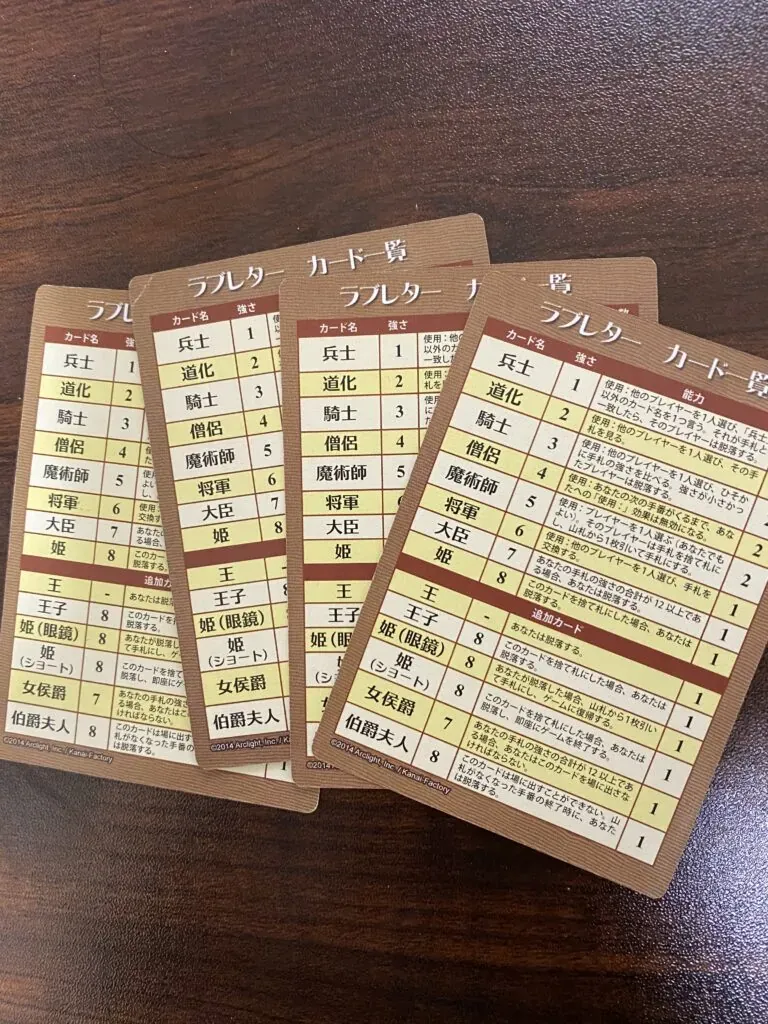 ラブレ
カード名 強
兵士 1
道化 2
騎士 3
僧侶 4
魔術師 5
将軍 6
大臣 7
姫 8
追加カ
王 -
王子 8
姫(眼鏡) 8
姫(ショート) 8
女侯爵 7
伯爵夫人 8
©2014 Arclight, Inc. / Kanai-Factory
ラブレター カード一覧
カード名 強さ
兵士 1
道化 2
騎士 3
僧侶 4
魔術師 5
将軍 6
大臣 7
姫 8
王
王子
姫(眼鏡)
姫(ショート)
女侯爵
伯爵夫人
©2014 Arclight, Inc. / Kanai-Factory
ラブレター
カード名 強さ
兵士 1 使用:他
道化 2
騎士 3
僧侶 4
魔術師 5
将軍
大臣
姫
王
王子
姫(眼
女侯
伯爵
©2014
ラブレター カード一覧
カード名 強さ 能力
兵士 1 使用:他のプレイヤーを1人選び、「兵士
以外のカード名を1つ言う。それが手札と
一致したら、そのプレイヤーは脱落する。
道化 2 使用:他のプレイヤーを1人選び、その手
札を見る。
騎士 3 使用:他のプレイヤーを1人選び、ひそか
に手札の強さを比べる。強さが小さかっ
たプレイヤーは脱落する。
僧侶 4 使用:あなたの次の手番がくるまで、あな
たへの「使用:」効果は無効になる。 2
魔術師 5 使用:プレイヤーを1人選ぶ(あなたでも
よい)。そのプレイヤーは手札を捨て札に
し、山札から1枚引いて手札にする。 2
将軍 6 使用:他のプレイヤーを1人選び、手札を
交換する。 1
大臣 7 あなたの手札の強さの合計が12以上であ
る場合、あなたは脱落する。 1
姫 8 このカードを捨て札にした場合、あなたは
脱落する。 1
追加カード
王 - あなたは脱落する。 1
王子 8 このカードを捨て札にした場合、あなたは
脱落する。 1
姫(眼鏡) 8 あなたが脱落した場合、山札から1枚引い
て手札にし、ゲームに復帰する。 1
姫(ショート) 8 このカードを捨て札にした場合、あなたは
脱落し、即座にゲームを終了する。 1
女侯爵 7 あなたの手札の強さの合計が12以上であ
る場合、あなたはこのカードを場に出さな
ければならない 1
伯爵夫人 8 このカードは場に出すことができない。山
札がなくなった手番の終了時に、あなた
は脱落する。 1
©2014 Arclight, Inc. / Kanai-Factory